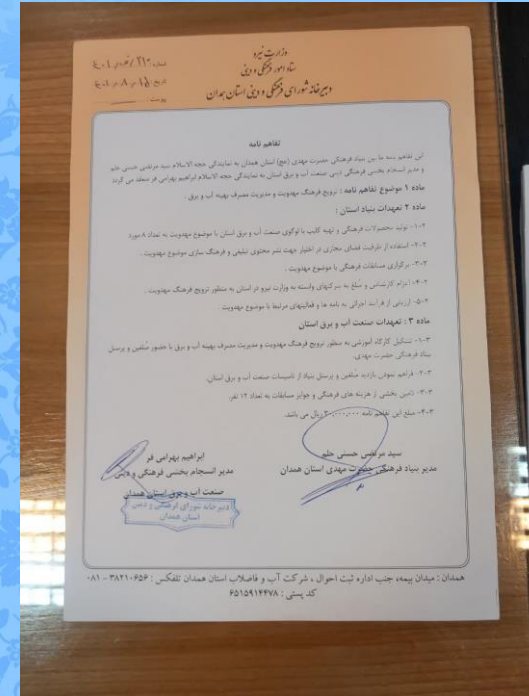 وزارت نیرو
ستاد امور فرهنگی و دینی
دبیرخانه شورای فرهنگی و دینی استان همدان
شماره:
تاریخ:
پیوست:
تفاهم نامه
این تفاهم نامه ما بین بنیاد فرهنگی حضرت مهدی (عج) استان همدان به نمایندگی حجه الاسلام سید مرتضی حسنی حلم
و مدیر انسجام بخشی فرهنگی دینی صنعت آب و برق استان به نمایندگی حجه الاسلام ابراهیم بهرامی فر منعقد می گردد
ماده ۱ موضوع تفاهم نامه : ترویج فرهنگ مهدویت و مدیریت مصرف بهینه آب و برق .
ماده ۲ تعهدات بنیاد استان :
۲-۱- تولید محصولات فرهنگی و تهیه کلیپ با لوگوی صنعت آب و برق استان با موضوع مهدویت به تعداد ۸ مورد
۲-۲- استفاده از ظرفیت فضای مجازی در اختیار جهت نشر محتوی تبلیغی و فرهنگ سازی موضوع مهدویت .
۲-۳- برگزاری مسابقات فرهنگی با موضوع مهدویت .
۲-۴- اعزام کارشناس و مبلغ به شرکتهای وابسته به وزارت نیرو در استان به منظور ترویج فرهنگ مهدویت .
۲-۵- ارزیابی از فرآیند اجرائی به نامه ها و فعالیتهای مرتبط با موضوع مهدویت .
ماده ۳ : تعهدات صنعت آب و برق استان
۳-۱- تشکیل کارگاه آموزشی به منظور ترویج فرهنگ مهدویت و مدیریت مصرف بهینه آب و برق با حضور مبلغین و پرسنل
بنیاد فرهنگی حضرت مهدی.
۳-۲- فراهم نمودن بازدید مبلغین و پرسنل بنیاد از تاسیسات صنعت آب و برق استان.
۳-۳- تامین بخشی از هزینه های فرهنگی و جوایز مسابقات به تعداد ۱۲ نفر.
۳-۴- مبلغ این تفاهم نامه ریال می باشد.
سید مرتضی حسنی حلم
مدیر بنیاد فرهنگی حضرت مهدی استان همدان
ابراهیم بهرامی فر
مدیر انسجام بخشی فرهنگی و دینی
صنعت آب و برق استان همدان
دبیرخانه شورای فرهنگی و دینی
استان همدان
همدان : میدان بیمه، جنب اداره ثبت احوال ، شرکت آب و فاضلاب استان همدان تلفکس : ۳۸۲۱۰۶۵۶ - ۰۸۱
کد پستی : ۶۵۱۵۹۱۴۴۷۸